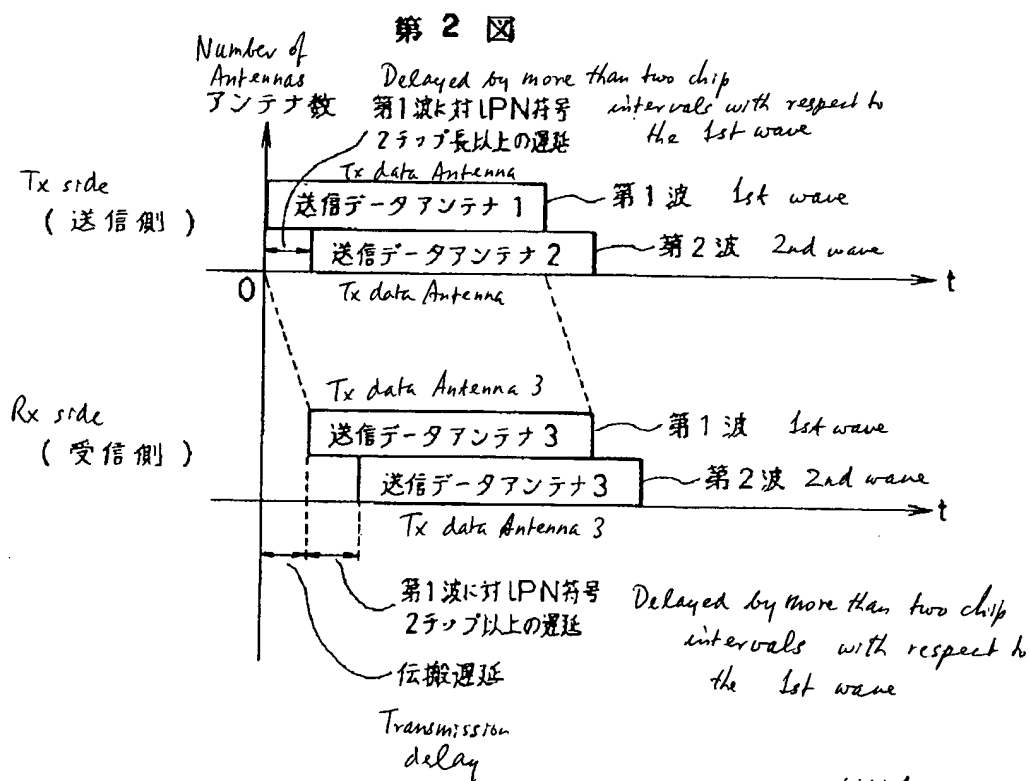 第2図
Number of
Antennas
アンテナ数
Delayed by more than two chip
intervals with respect to
the 1st wave
第1波に対しPN符号
2チップ長以上の遅延
Tx side
(送信側)
Tx data Antenna
送信データアンテナ1
第1波 1st wave
送信データアンテナ2
第2波 2nd wave
0
t
Tx data Antenna
Rx side
(受信側)
Tx data Antenna 3
送信データアンテナ3
第1波 1st wave
送信データアンテナ3
第2波 2nd wave
t
Tx data Antenna 3
第1波に対しPN符号
2チップ以上の遅延
Delayed by more than two chip
intervals with respect to
the 1st wave
伝搬遅延
Transmission
delay